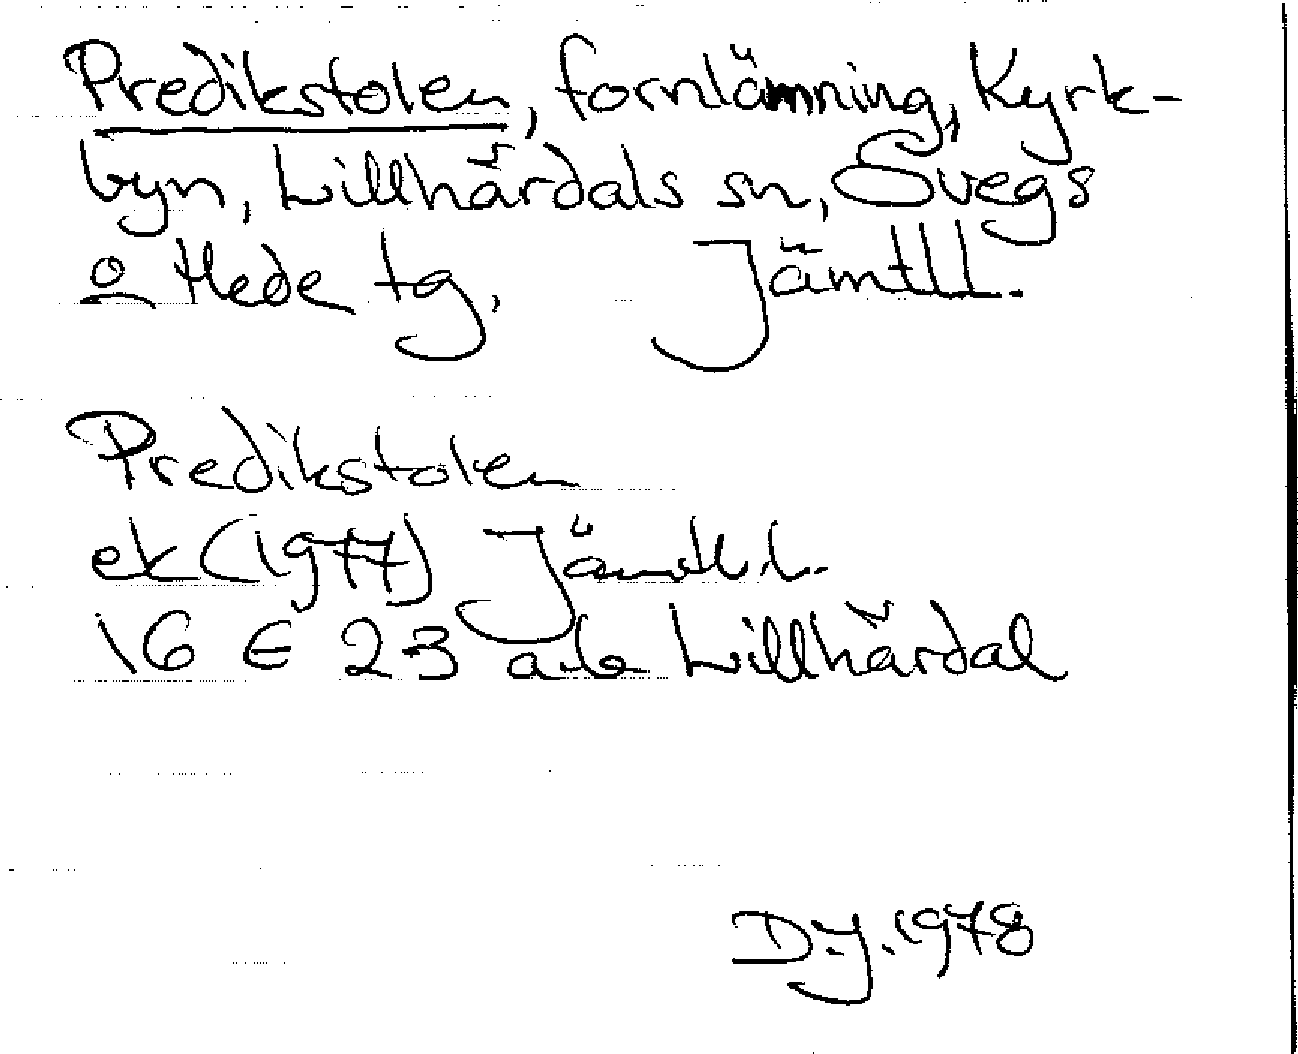 Predikstolen, fornlämning, Kyrk-
byn, Lillhärdals sn, Svegs
o Hede tg, Jämtl l.
Predikstolen
ek (1977) Jämtl. l.
16 E 23 a-b Lillhärdal
D.J. 1978